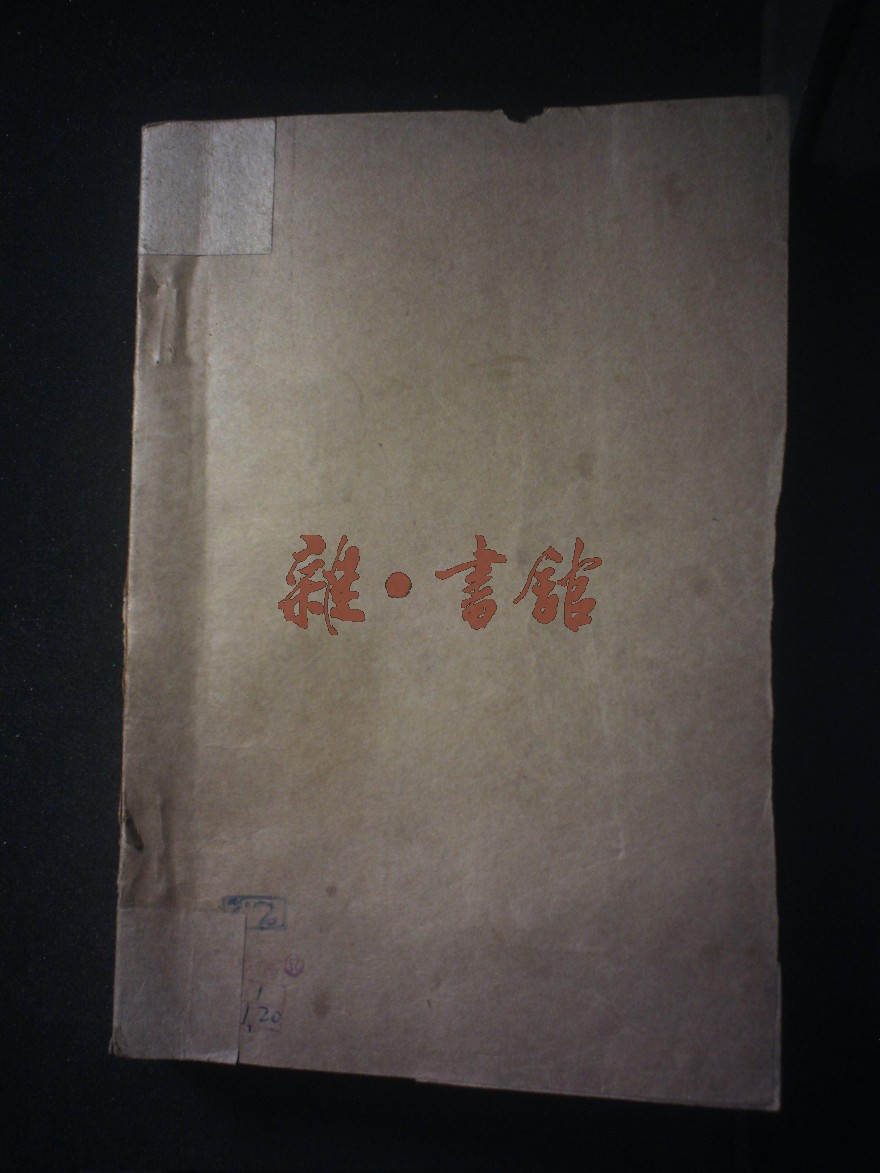 雜·書館
2
1
1.20